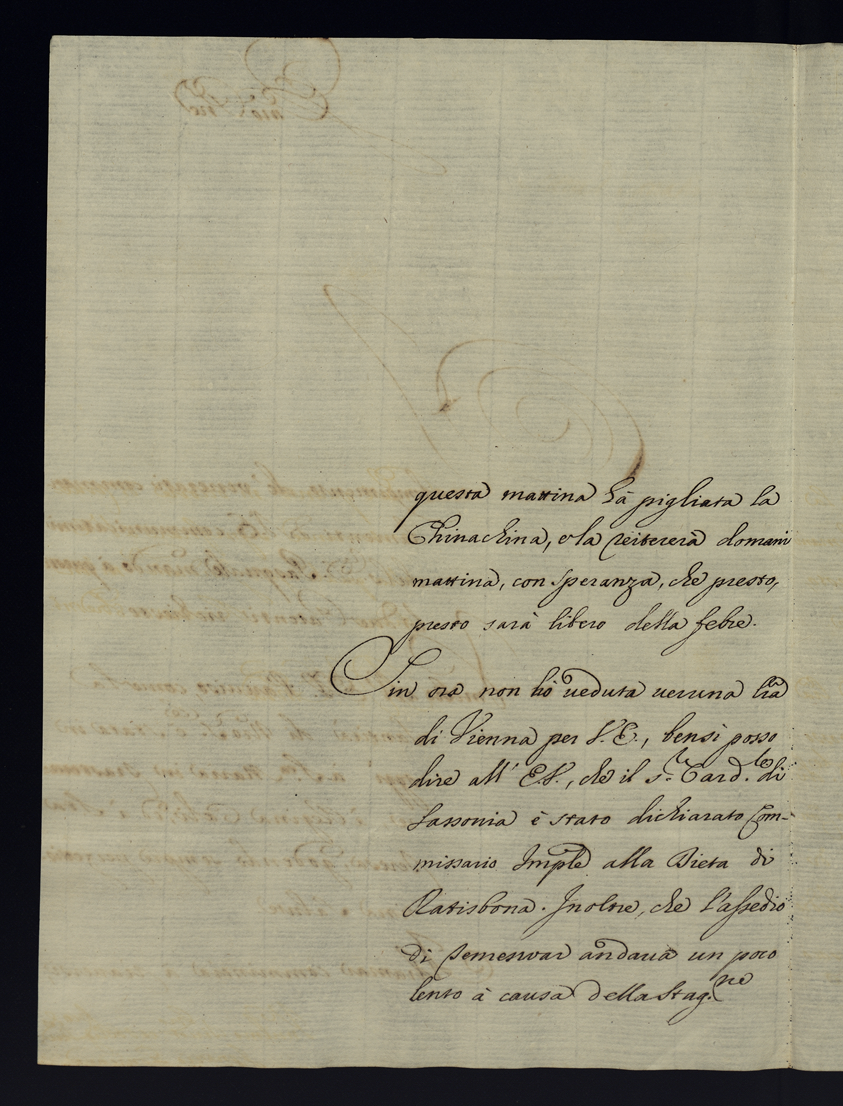 questa mattina hà pigliata la
Chinachina, e la reitererà domani
mattina, con speranza, che presto,
presto sarà libero della febre.
Sin ora non hò veduta veruna lra
di Vienna per S. E., bensì posso
dire all' E. S., che il s.r Card.le di
Sassonia è stato dichiarato Com-
missario Imple alla Dieta di
Ratisbona. Inoltre, che l'assedio
di Temeswar andava un poco
lento à causa della Stag.ne